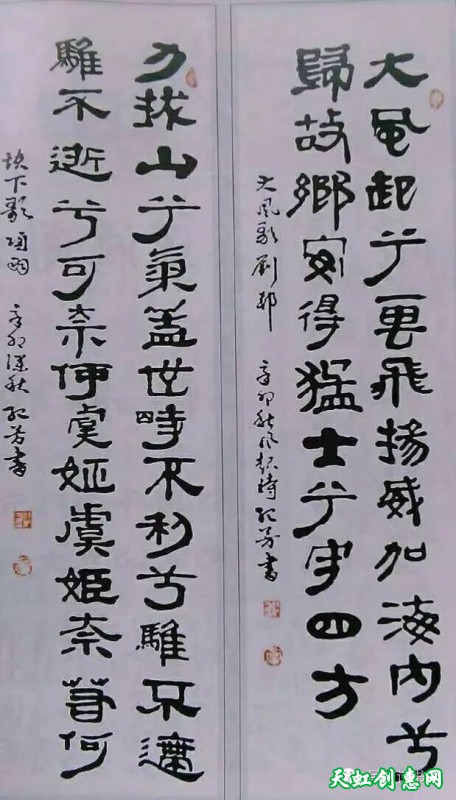 大風起兮雲飛揚威加海内兮
歸故鄉安得猛士兮守四方
大風歌 劉邦 辛卯秋風起時 芳書
力拔山兮氣蓋世時不利兮騅不
騅不逝兮可奈何虞姬虞姬奈若何
垓下歌 項羽 辛卯深秋 芳書
天虹创惠网